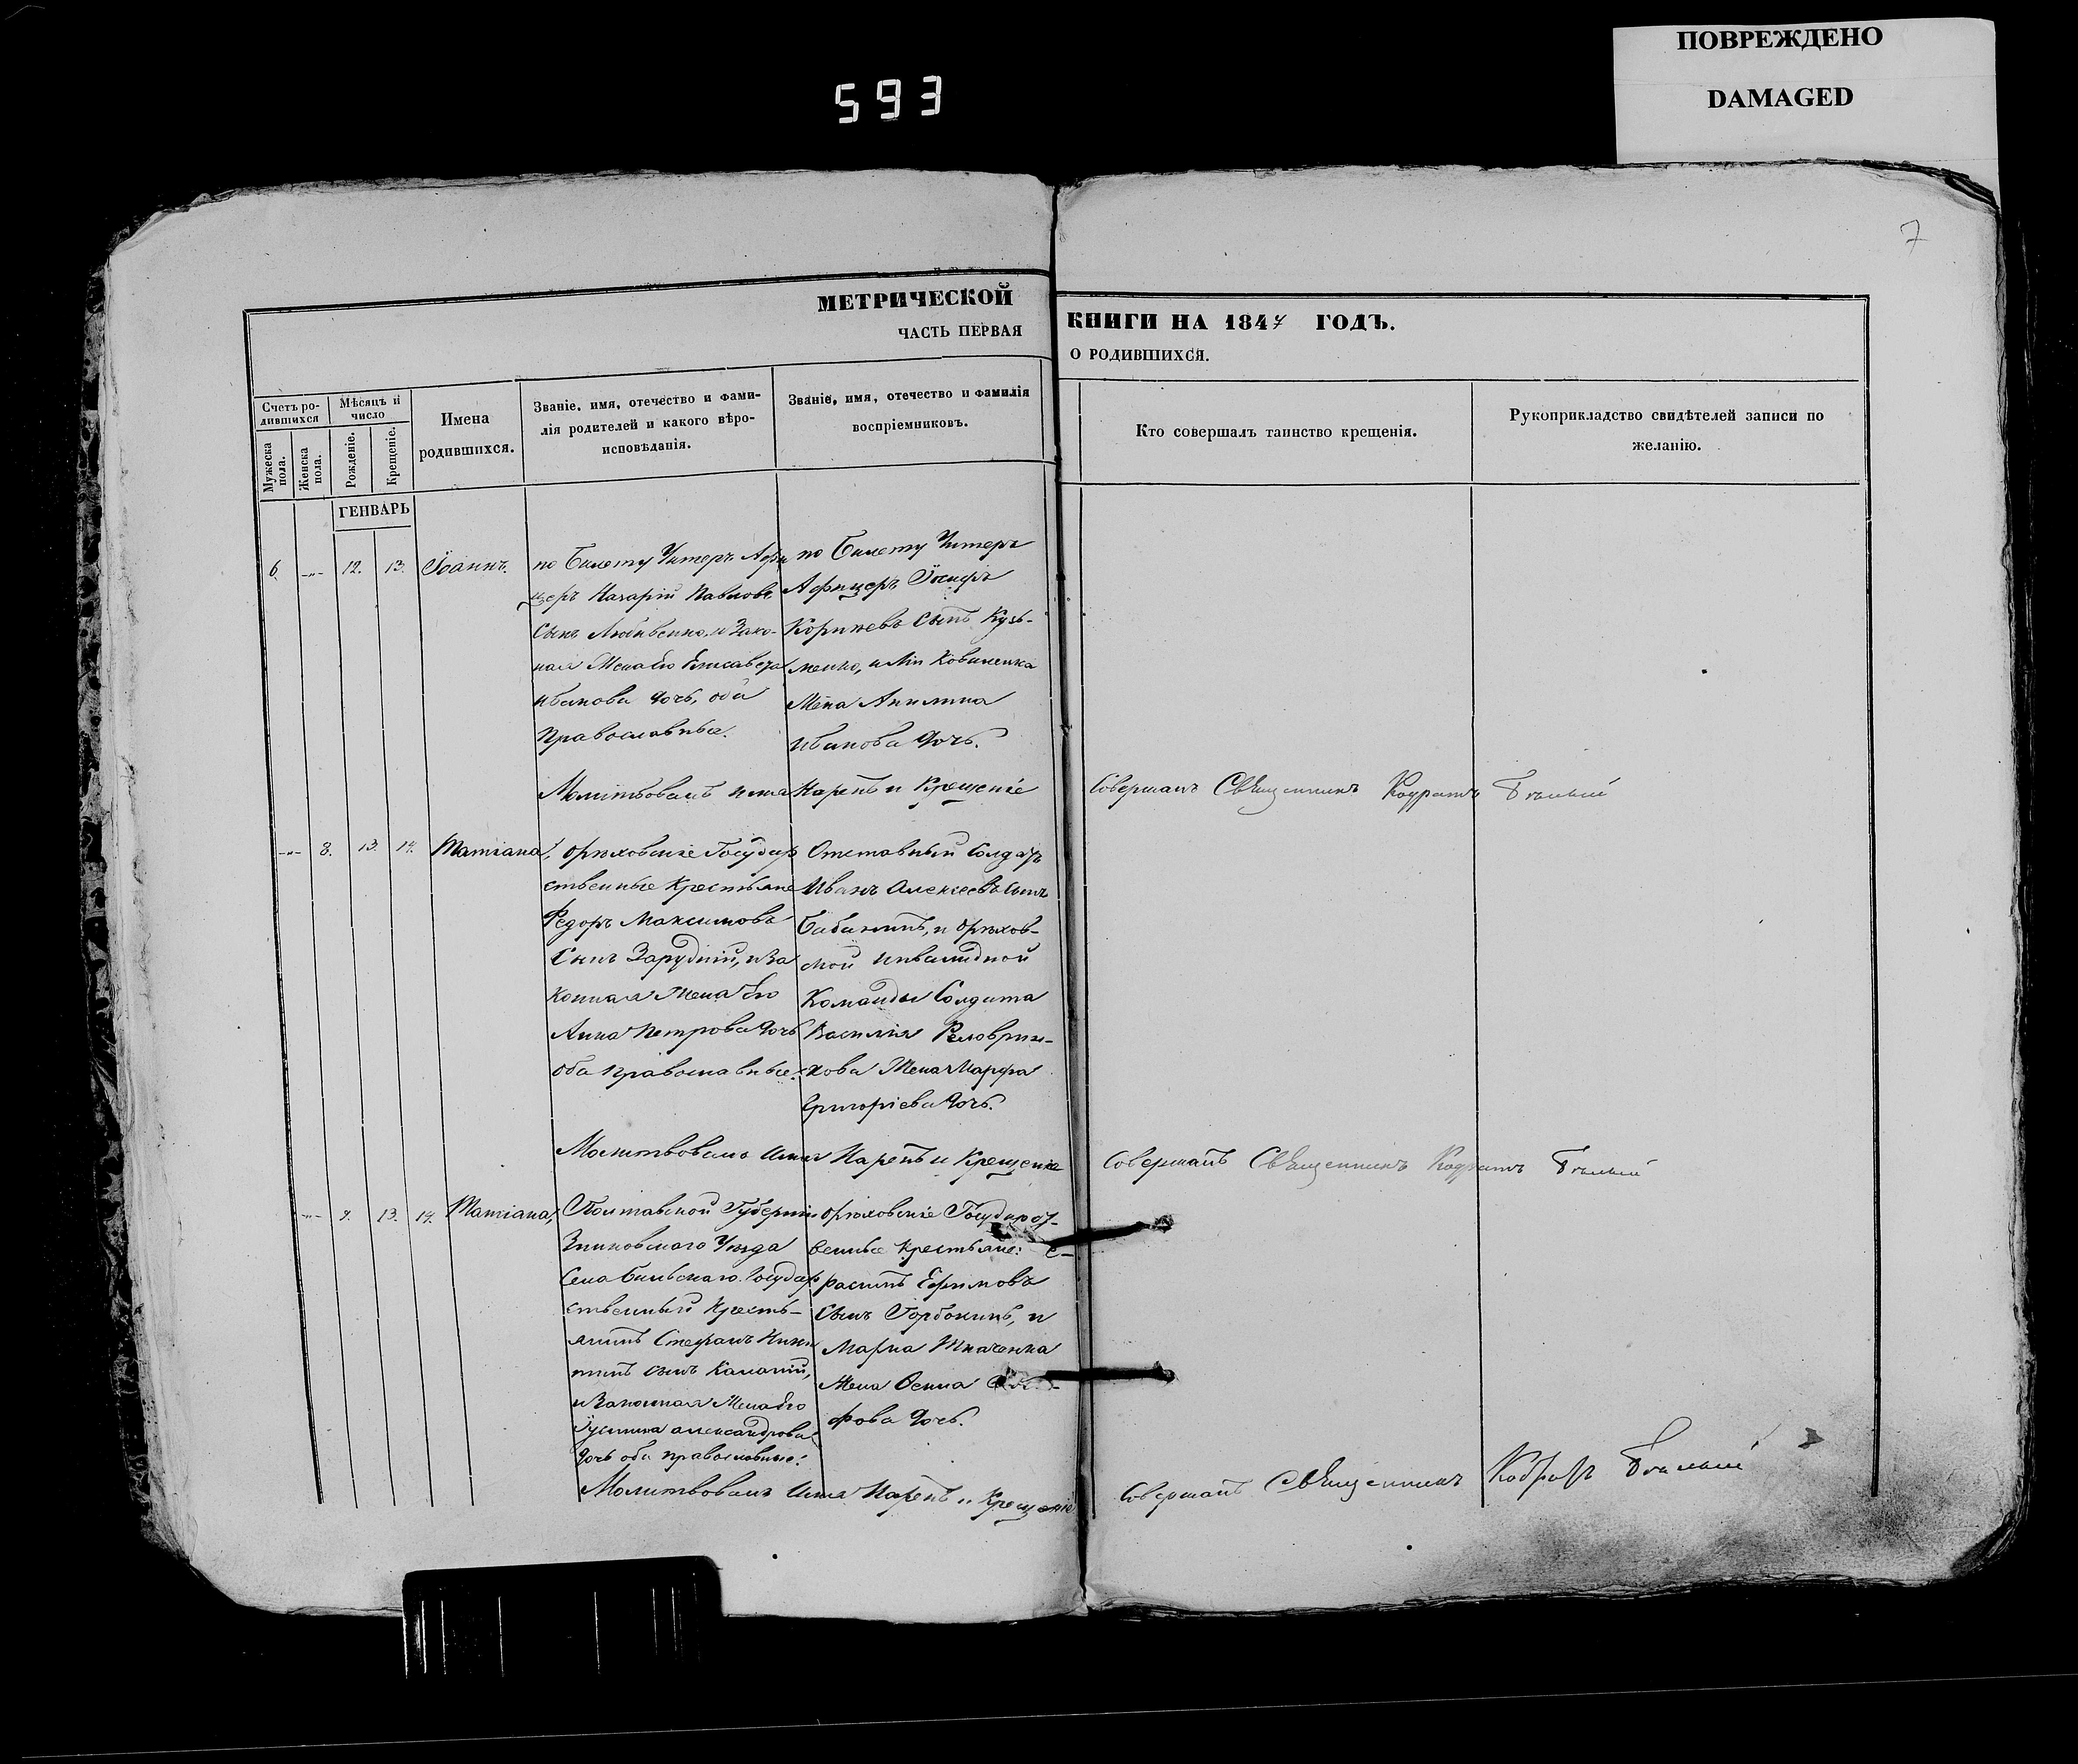 ПОВРЕЖДЕНО
DAMAGED
593
7
МЕТРИЧЕСКОЙ
ЧАСТЬ ПЕРВАЯ
КНИГИ НА 1847 ГОДЪ.
О РОДИВШИХСЯ.
Счетъ ро-
дившихся
Мужеска
пола.
Женска
пола.
Мѣсяцъ и
число
Рожденіе.
Крещеніе.
Имена
родившихся.
Званіе, имя, отечество и фами-
лія родителей и какого вѣро-
исповѣданія.
Званіе, имя, отечество и фамилія
воспріемниковъ.
Кто совершалъ таинство крещенія.
Рукоприкладство свидѣтелей записи по
желанію.
ГЕНВАРЬ
6. -„- 12. 13. Іоаннъ.
по Билету Унтеръ Афи
церъ Назарій Павловъ
Сынъ и Зако-
ная Жена его Елисавета
Иванова дочь, оба
Православные.
по Билету Унтеръ
Афицеръ Іосифъ
Корнѣевъ Сынъ Кузь-
менко, и
Жена Акилина
Иванова дочь.
Молитвовалъ имя Нарекъ и Крещеніе
Совершалъ Священникъ Кодратъ Бѣлый
-„- 8. 13. 14. Татіана,
Орѣховскіе Государ
ственные Крестьяне
Федоръ Максимовъ
Сынъ Зарудній, и За
конная Жена Его
Анна Петрова дочь
оба православные.
Отставный Солдатъ
Иванъ Алексеевъ Сынъ
и Орѣхов-
ской Инвалидной
Команды Солдата
Василія
Жена Марфа
Григоріева дочь.
Молитвовалъ Имя Нарекъ и Крещеніе
Совершалъ Священникъ Кодратъ Бѣлый
-„- 9. 13. 14. Татіана,
Полтавской Губерніи
Зѣньковскаго Уѣзда
Села Бильскаго Государ
ственный Кресть-
янинъ Стефанъ Ники
тинъ сынъ
и Законная Жена Его
Іустина александрова
дочь оба православные.
Орѣховскіе Государст-
венные Крестьяне:
Ефимовъ
Сынъ Горбокинъ, и
Марка Ткаченка
Жена
фова дочь.
Молитвовалъ Имя Нарекъ и Крещеніе
Совершалъ Священникъ Кодратъ Бѣлый